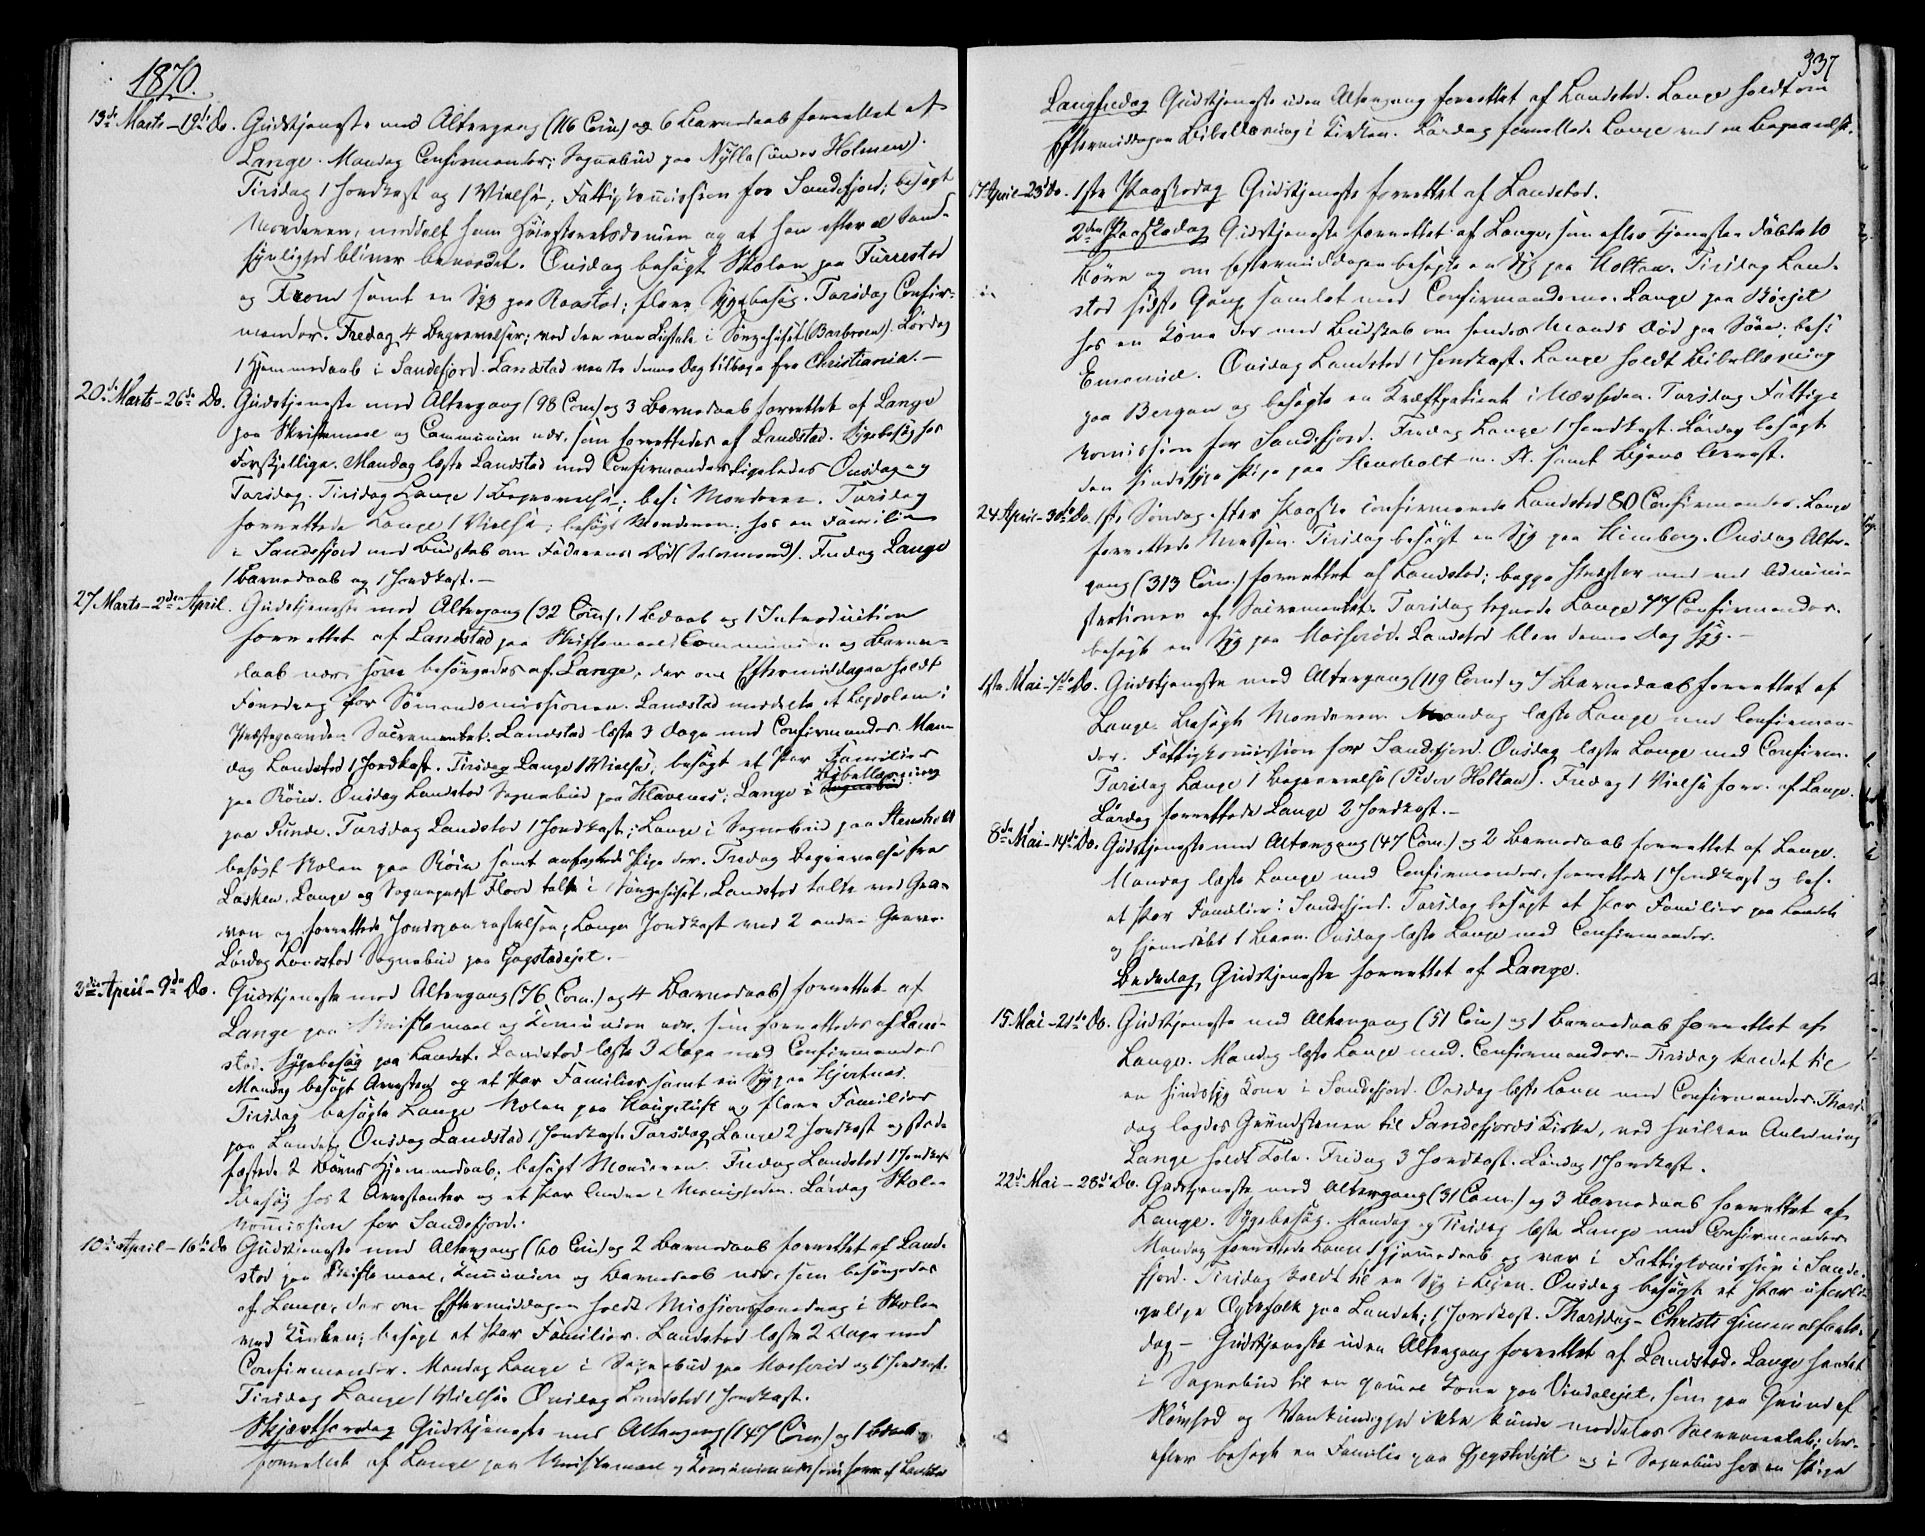 1870.
13de Marts – 19de Do. Gudstjeneste med Altergang (116 Com) og 6 Barnedaab forrettet af
Lange. Mandag Confirmander; Sognebud paa Nylla (under Holmen).
Tirsdag 1 Jordkast og 1 Vielse; Fattigkomission for Sandefjord; besøgt
Morderen, meddelt ham Høiesteretsdomen og at han efter al Sand-
synlighed bliver benaadet. Onsdag besøgt Skolen paa Furrestad
og From samt en Syg paa Raastad; flere Sygebesøg. Torsdag Confir-
mander. Fredag 4 Begravelser; ved den ene Ligtale i Sørgehuset (Barbroen). Lørdag
1 Hjemmedaab i Sandefjord. Landstad vendte denne Dag tilbage fra Christiania. –
20de Marts – 26de Do. Gudstjeneste med Altergang (98 Com) og 3 Barnedaab forrettet af Lange
paa Skriftemaal og Communion nær, som forrettedes af Landstad. Sygebesøg hos
Forskjellige. Mandag læste Landstad med Confirmander ligeledes Onsdag og
Torsdag. Tirsdag Lange 1 Begravelse; bes: Morderen. Torsdag
forrettede Lange 1 Vielse; besøgt Morderen; hos en Familie
i Sandefjord med Budskab om Faderens Død (Salomons). Fredag Lange
1 Barnedaab og 1 Jordkast. –
27 Marts – 2den April. Gudstjeneste med Altergang (32 Com), 1 Bdaab og 1 Introduction
forrettet af Landstad paa Skriftemaal Communion og Barne-
daab nær, som besørgedes af Lange, der om Eftermiddagen holdt
Foredrag for Sømandsmissionen. Landstad meddelte et Lægdslem i
Præstegaarden Sacramentet. Landstad læste 3 Dage med Confirmander. Man-
dag Landstad 1 Jordkast. Tirsdag Lange 1 Vielse; besøgt et Par Familier
paa Røin. Onsdag Landstad Sognebud paa Klavenes; Lange i Bibellæsning
paa Sunde. Torsdag Landstad 1 Jordkast; Lange i Sognebud paa Stensholt
besøgt Skolen paa Røin samt anfægtede Pige der. Fredag Begravelse fra
Lasken, Lange og Sogneprest Flood talte i Sørgehuset, Landstad talte ved Gra-
ven og forrettede Jordspaakastelsen; Lange Jordkast ved 2 andre Grave.
Lørdag Landstad Sognebud paa Gogstadejet. –
3die April – 9de Do. Gudstjeneste med Altergang (76 Com.) og 4 Barnedaab forrettet af
Lange paa Skriftemaal og Komunion nær, som forrettedes af Land-
stad. Sygebesøg paa Landet. Landstad læste 3 Dage med Confirmander
Mandag besøgt Arresten og et Par Familier samt en Syg paa Hjertnes.
Tirsdag besøgte Lange Skolen paa Haugetuft og flere Familier
paa Landet. Onsdag Landstad 1 Jordkast. Torsdag Lange 2 Jordkast og stad-
fæstede 2 Børns Hjemmedaab; besøgt Morderen. Fredag Landstad 1 Jordkast
Besøg hos 2 Arrestanter og et Par Andre i Menigheden. Lørdag Skole-
komission for Sandefjord.
10de April – 16de Do Gudstjeneste med Altergang (60 Com) og 2 Barnedaab forrettet af Land-
stad paa Skriftemaal, Komunion og Barnedaab nær, som besørgedes
af Lange, der om Eftermiddagen holdt Missionsforedrag i Skolen
ved Kirken; besøgt et Par Familier. Landstad læste 2 Dage med
Confirmander. Mandag Lange i Sognebud paa Mosserød og 1 Jordkast.
Tirsdag Lange 1 Vielse. Onsdag Landstad 1 Jordkast.
Skjærthorsdag Gudstjeneste med Altergang (147 Com) og 1 Bdaab
forrettet af Lange paa Skriftemaal og Komunion som forr. af Landstad
337
Langfredag Gudstjeneste uden Altergang forrettet af Landstad. Lange holdt om
Eftermiddagen Bibellæsning i Kirken. Lørdag forrettede Lange ved en Begravelse.
17 April – 23de Do. 1ste Paaskedag Gudstjeneste forrettet af Landstad.
2den Paaskedag Gudstjeneste forrettet af Lange, som efter Tjenesten døbte 10
Børn og om Eftermiddagen besøgte en Syg paa Holtan. Tirsdag Land-
stad sidste Gang samlet med Confirmanderne. Lange paa Børjet
hos en Kone der med Budskab om hendes Mands Død paa Søen; bes:
Emanuel. Onsdag Landstad 1 Jordkast. Lange holdt Bibellæsning
paa Bergan og besøgte en Kræftpatient i Nærheden. Torsdag Fattig-
komission for Sandefjord. Fredag Lange 1 Jordkast. Lørdag besøgt
den sindssyge Pige paa Stensholt m. Fl. samt Byens Arrest.
24 April – 30te Do. 1ste Søndag efter Paaske confirmerede Landstad 80 Confirmander. Lange
forrettede Messen. Tirsdag besøgt en Syg paa Himberg. Onsdag Alter-
gang (313 Com.) forrettet af Landstad; begge Præster med ved Admini-
strationen af Sacramentet. Torsdag tegnede Lange 77 Confirmander.
besøgt en Syg paa Mosserød. Landstad blev denne Dag syg. –
1ste Mai – 7de Do. Gudstjeneste med Altergang (119 Com) og 7 Barnedaab forrettet af
Lange. Besøgt Morderen. Mandag læste Lange med Confirman-
der. Fattigkomission for Sandefjord. Onsdag læste Lange med Confirm.
Torsdag Lange 1 Begravelse (Peder Holtan). Fredag 1 Vielse forr. af Lange.
Lørdag forrettede Lange 2 Jordkast. –
8de Mai – 14de Do. Gudstjeneste med Altergang (47 Com.) og 2 Barnedaab forrettet af Lange.
Mandag læste Lange med Confirmander, forrettede 1 Jordkast og bes:
et Par Familier i Sandefjord. Torsdag besøgt et Par Familier paa Landet
og hjemmedøbt 1 Barn. Onsdag læste Lange med Confirmander.
Bededag Gudstjeneste forrettet af Lange.
15 Mai – 21de Do. Gudstjeneste med Altergang (51 Com) og 1 Barnedaab forrettet af
Lange. Mandag læste Lange med Confirmander. – Tirsdag kaldet til
en sindssyg Kone i Sandefjord. Onsdag læste Lange med Confirmander. Thors-
dag lagdes Grundstenen til Sandefjords Kirke, ved hvilken Anledning
Lange holdt Tale. Fredag 3 Jordkast. Lørdag 1 Jordkast.
22de Mai – 28de Do. Gudstjeneste med Altergang (31 Com.) og 3 Barnedaab forrettet af
Lange. Sygebesøg. Mandag og Tirsdag læste Lange med Confirmander
Mandag forrettede Lange 1 Hjemmedaab og var i Fattigkomission i Sande-
fjord. Tirsdag kaldt til en Syg i Byen. Onsdag besøgt et Par uforli-
gelige Ægtefolk paa Landet; 1 Jordkast. Thorsdag – Christi Himmelfarts-
dag – Gudstjeneste uden Altergang forrettet af Landstad. Lange hentet
i Sognebud til en gammel Kone paa Vindalejet, som paa Grund af
Sløvhed og Vankundighed ikke kunde meddeles Sacramentet; der-
efter besøgt en Familie paa Gjegstadejet og i Sognebud hos en Pige